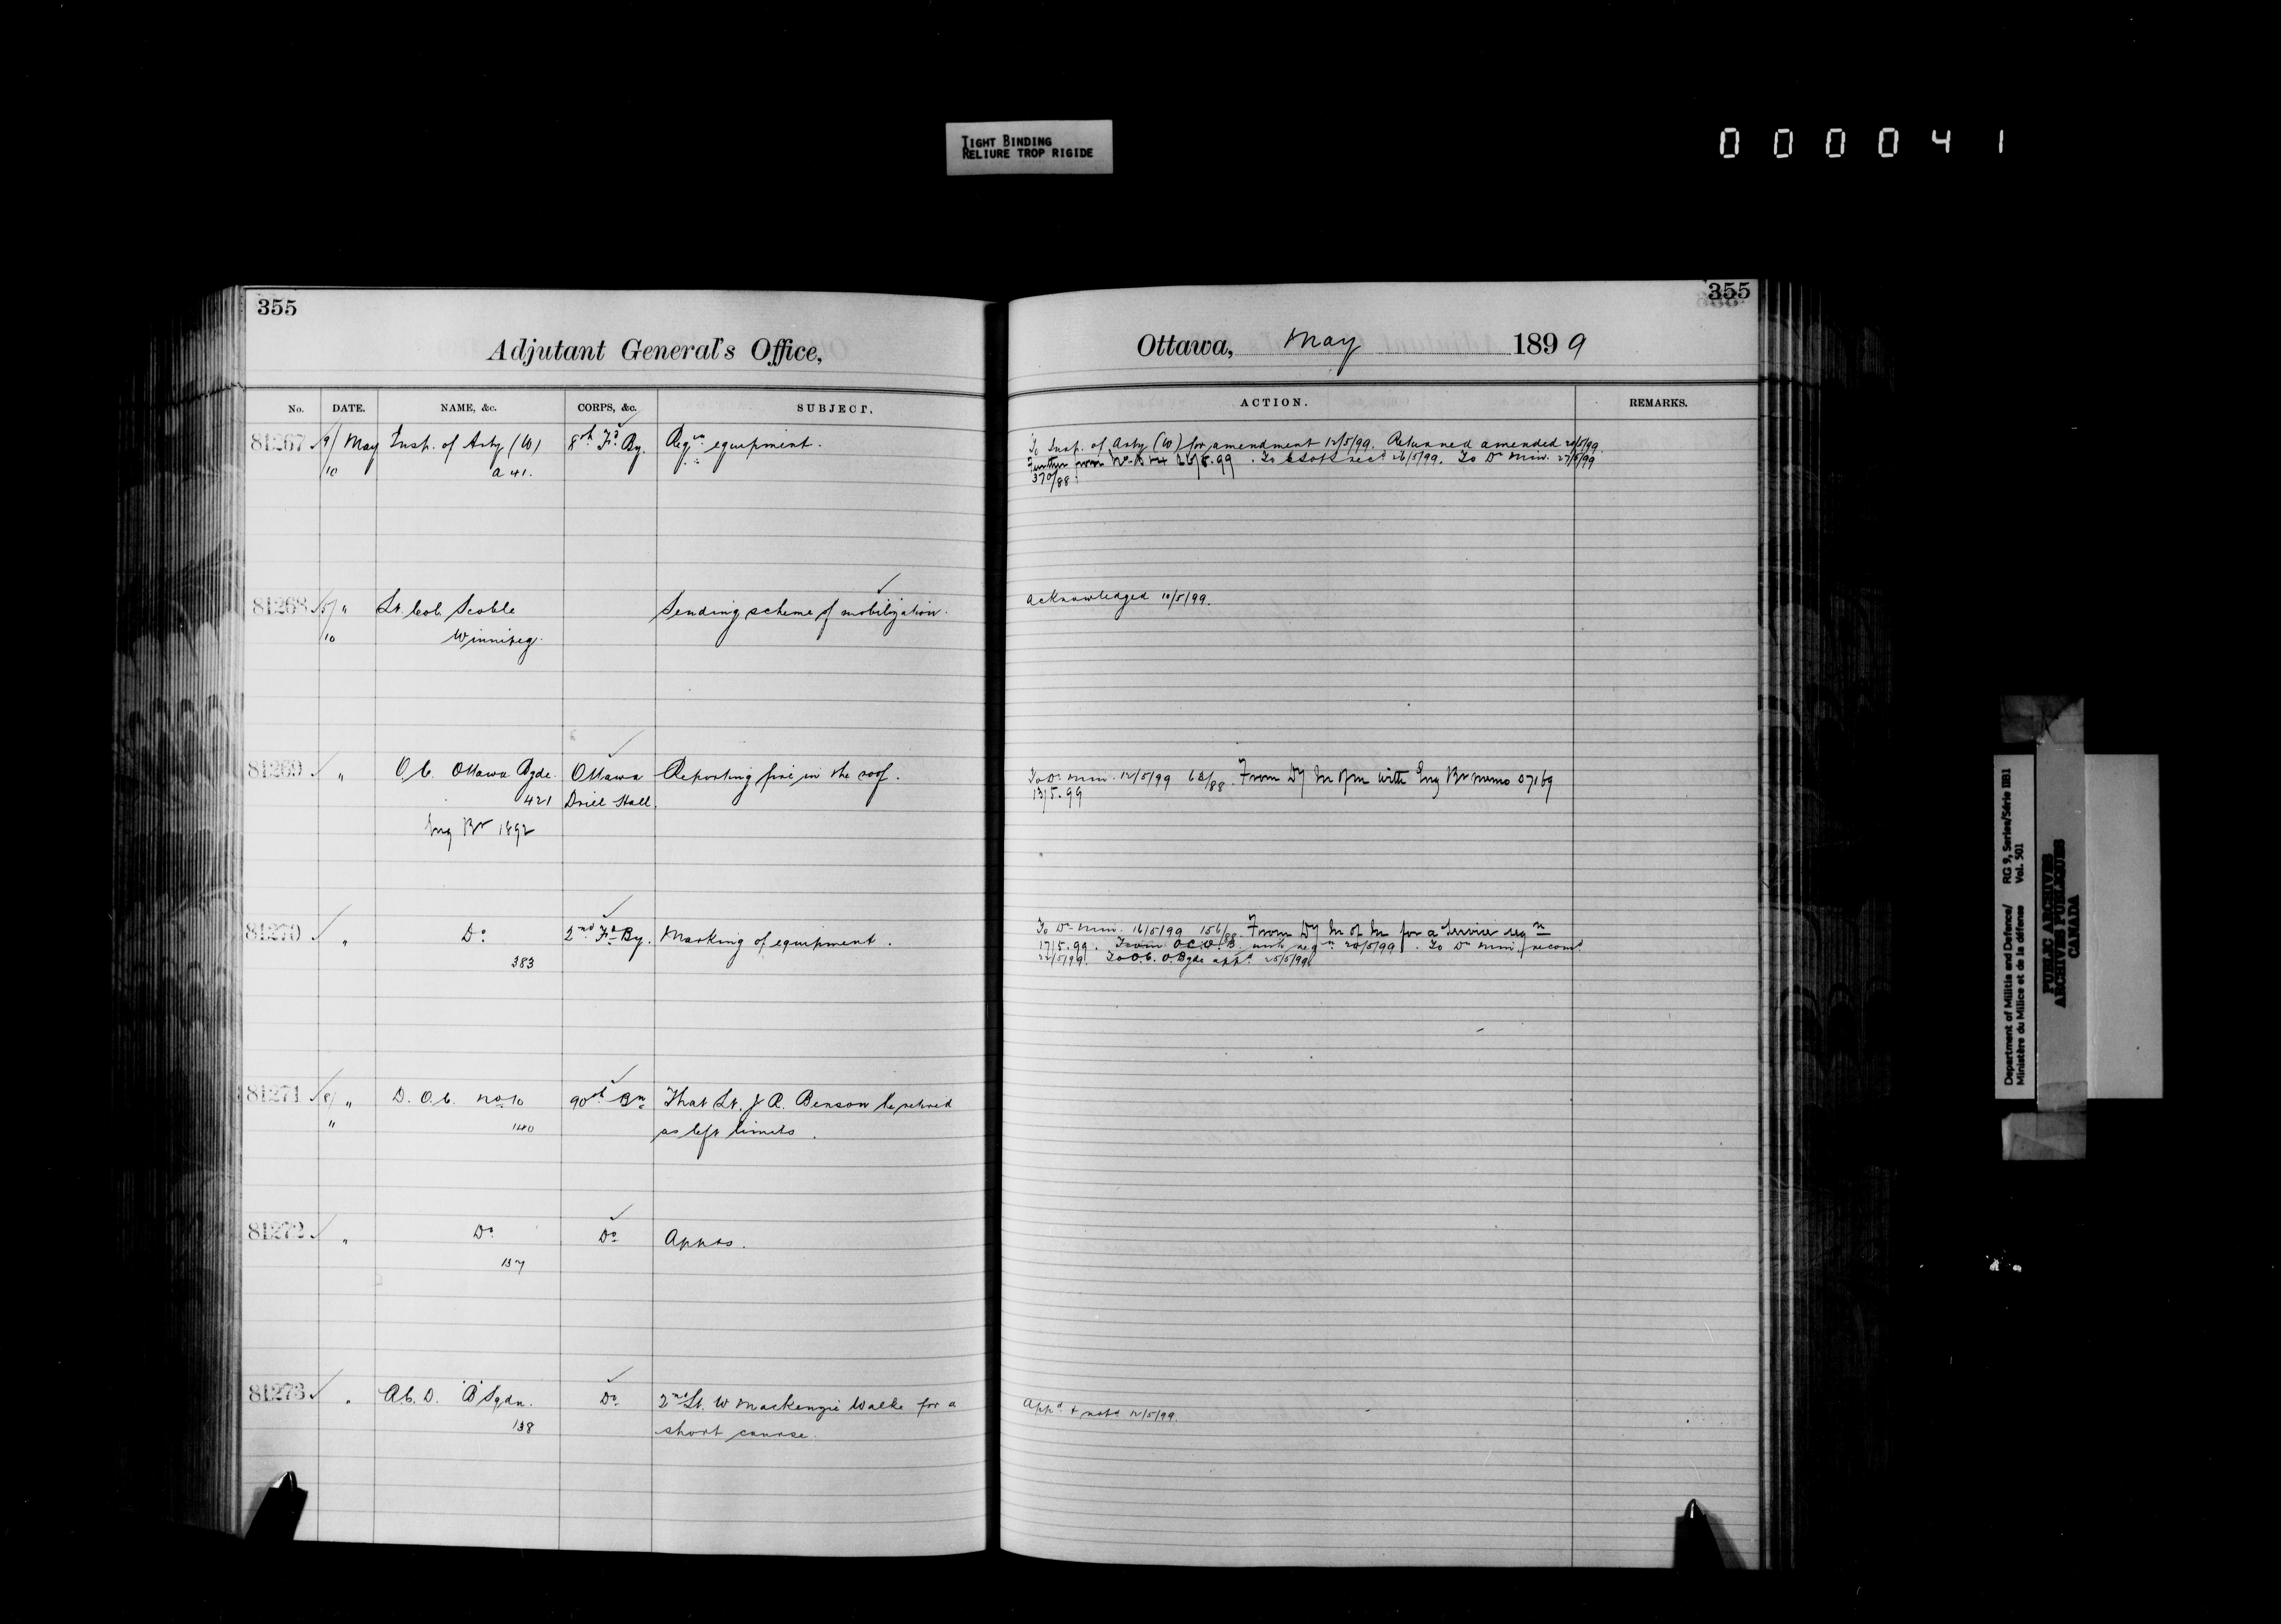 TIGHT BINDING
RELIURE TROP RIGIDE
000041
355
Adjutant General's Office,
No. DATE. NAME, &c. CORPS, &c. SUBJECT.
81267 9/ May Insp. of Arty (W) 8th Fd By. Reqn equipment.
10 A 41.
81268 5/ " Lt. Col. Scoble Sending scheme of mobilization.
10 Winnipeg.
81269 " O.C. Ottawa Bgde. Ottawa Reporting fire in the roof.
421 Drill Hall.
Eng Br 1892
81270 " Do 2nd Fd By. Marking of equipment.
383
81271 8/ " D. O. C. No 10 90th Bn That Lt. J R. Benson be retired
" 140 as left limits.
81272 " Do Do Appts.
137
81273 " A.C. D. "A" Sqdn. Do 2nd Lt. W Mackenzie Walke for a
138 short course.
355
Ottawa, May 1899
ACTION. REMARKS.
To Insp. of Arty (W) for amendment 12/5/99. Returned amended 20/5/99.
Further from 26/5.99. To recd 26/5/99. To Dr Min. 27/5/99
370/88
Acknowledged 10/5/99.
To Dr Min. 12/5/99 62/88. From Dy M of M with Eng Br memo 07169
13/5.99
To Dr Min. 16/5/99 156/88. From Dy M of M for a Service reqn
17/5.99. From O C O. B. with reqn 20/5/99. To Dr Min recomd
22/5/99. To O.C. O. Bgde appd 25/5/99
Appd & notd 12/5/99.
Department of Militia and Defence/ RG 9, Series/Série IIB1
Ministère du Milice et de la défense Vol. 501
PUBLIC ARCHIVES
ARCHIVES PUBLIQUES
CANADA